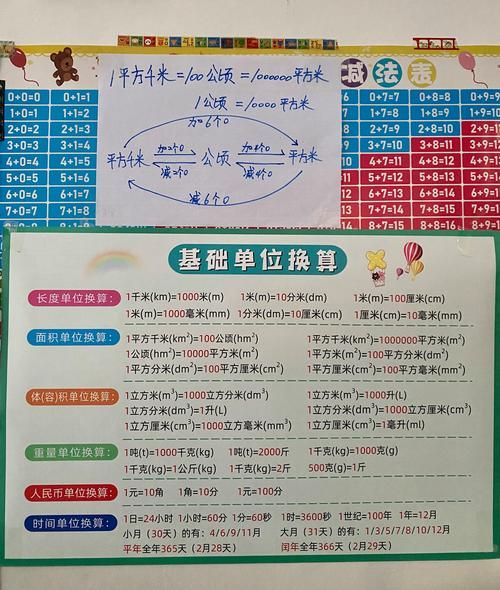 减法表
1平方千米=100公顷=1000000平方米
1公顷=10000平方米
加6个0
平方千米 加2个0 减2个0 公顷 加4个0 减4个0 平方米
减6个0
0+0=0 0+1=1 0+7=7 0+8=8 0+9=9
1+0=1 1+1=2 1+7=8 1+8=9
2+0=2 2+1=3 2+7=9 2+8=10
3+0=3 3+1=4 3+7=10 3+8=11
4+0=4 4+1=5 4+7=11 4+8=12
5+0=5 5+1=6 5+7=12 5+8=13
6+0=6 6+1=7 6+7=13 6+8=14
7+0=7 7+1=8 7+7=14 7+8=15
8+7=15 8+8=16
基础单位换算
长度单位换算: 1千米(km)=1000米(m) 1米(m)=10分米(dm) 1米(m)=100厘米(cm)
1米(m)=1000毫米(mm) 1分米(dm)=10厘米(cm) 1厘米(cm)=10毫米(mm)
面积单位换算: 1平方千米(km²)=100公顷(hm²) 1平方千米(km²)=1000000平方米(m²)
1公顷(hm²)=10000平方米(m²) 1平方米(m²)=100平方分米(dm²)
1平方分米(dm²)=100平方厘米(cm²) 1平方厘米(cm²)=100平方毫米(mm²)
体(容)积单位换算: 1立方米(m³)=1000立方分米(dm³) 1立方米(m³)=1000升(L)
1立方分米(dm³)=1升(L) 1立方分米(dm³)=1000立方厘米(cm³)
1立方厘米(cm³)=1000立方毫米(mm³) 1立方厘米(cm³)=1毫升(ml)
重量单位换算: 1吨(t)=1000千克(kg) 1吨(t)=2000斤 1千克(kg)=1000克(g)
1千克(kg)=1公斤(kg) 1千克(kg)=2斤 500克(g)=1斤
人民币单位换算: 1元=10角 1角=10分 1元=100分
时间单位换算: 1日=24小时 1小时=60分 1分=60秒 1时=3600秒 1世纪=100年 1年=12月
小月（30天）的有：4/6/9/11月 大月（31天）的有：1/3/5/7/8/10/12月
平年全年365天（2月28天） 闰年全年366天（2月29天）